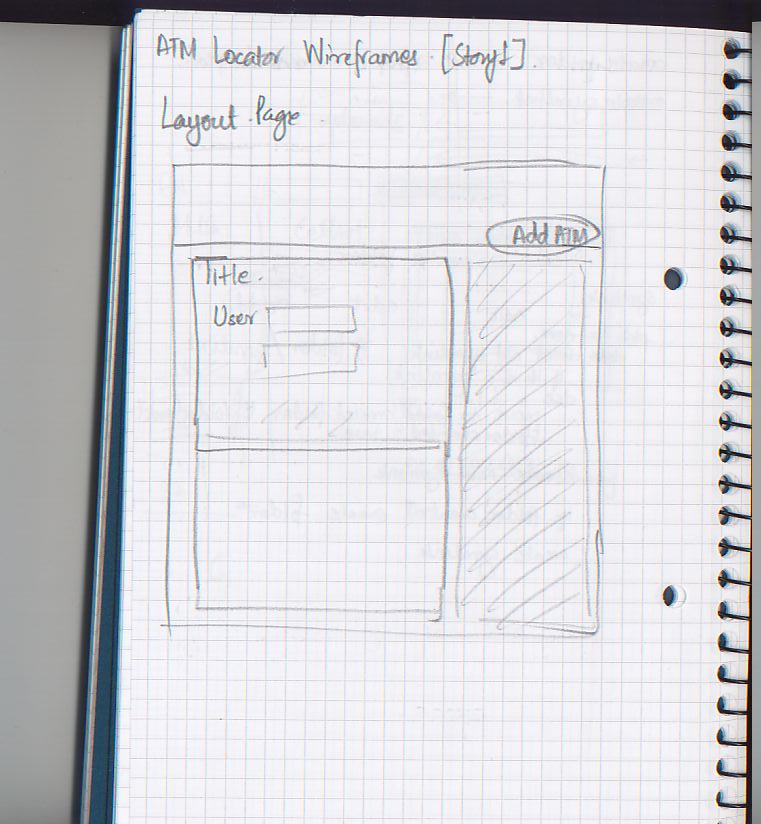 ATM Locator Wireframes. [Story1].
Layout Page
Add ATM
Title.
User